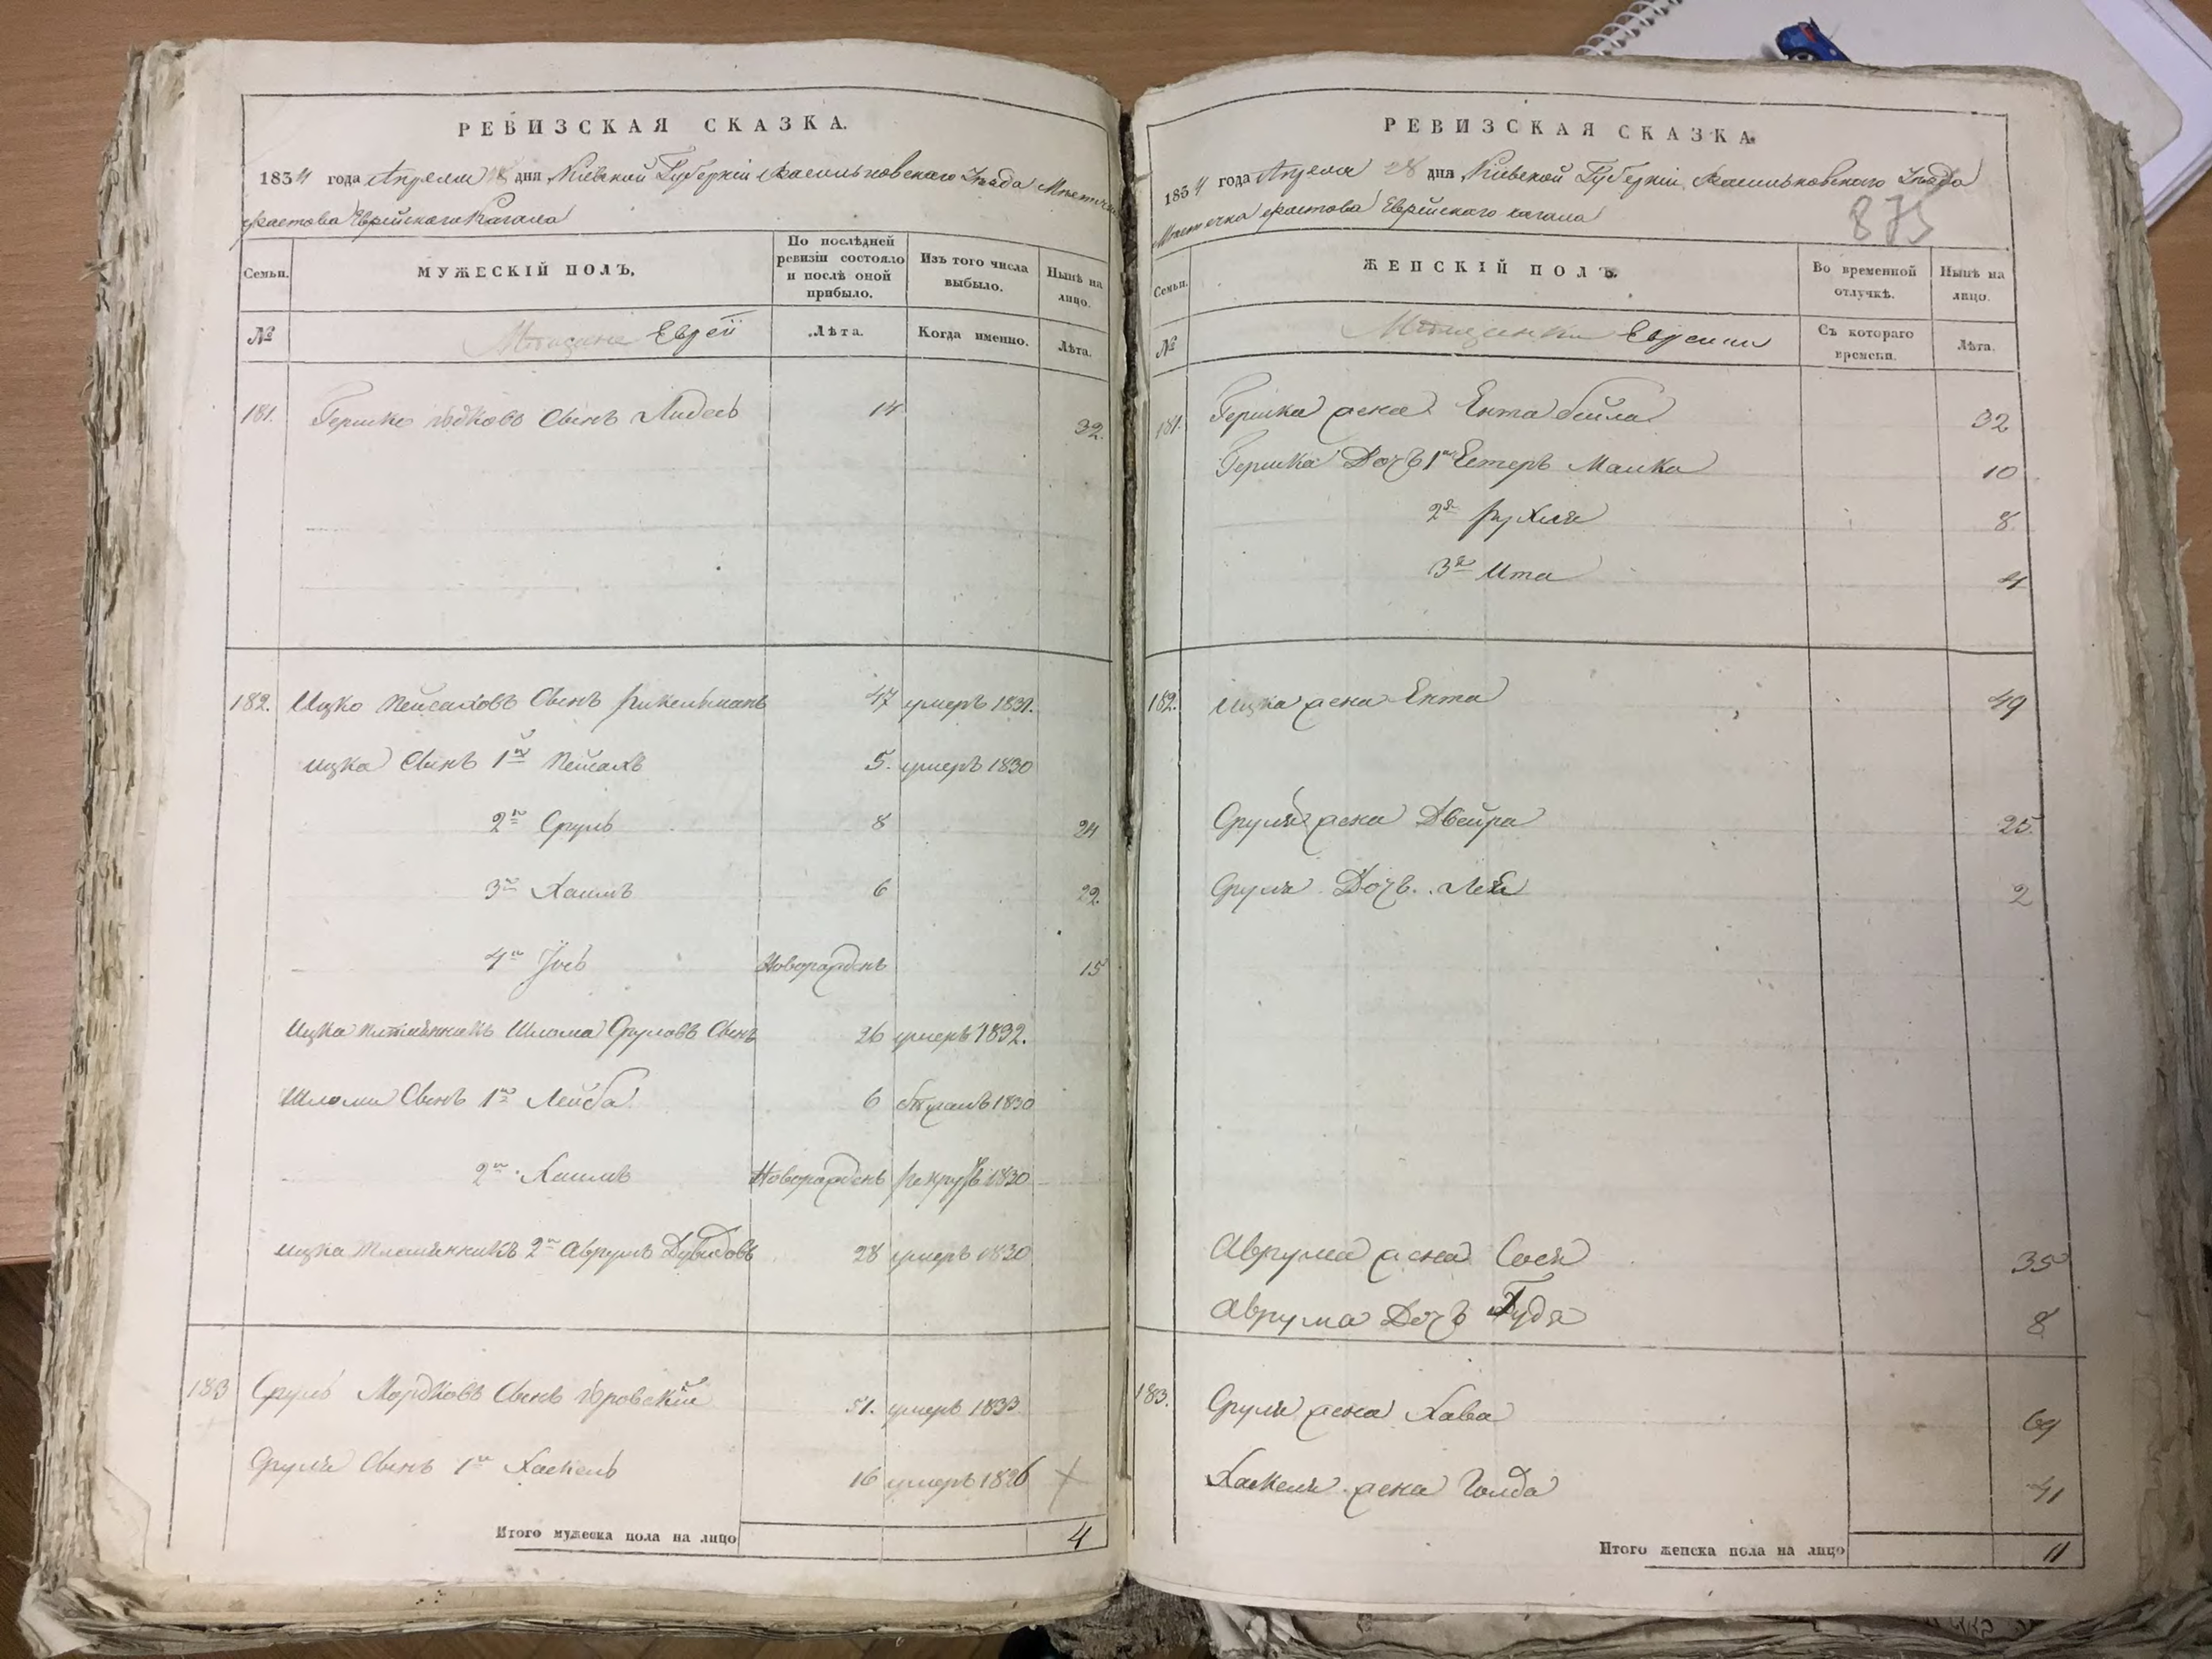 РЕВИЗСКАЯ СКАЗКА.
1834 года Апреля 28 дня Кіевской Губерніи Васильковскаго Уѣзда Мѣстечка
Фастова Еврейскаго Кагала
Семьи.
МУЖЕСКІЙ ПОЛЪ.
По послѣдней ревизіи состояло и послѣ оной прибыло.
Изъ того числа выбыло.
Нынѣ на лицо.
№
Мѣщане Евреи
Лѣта.
Когда именно.
Лѣта.
181. Гершко Юдковъ Сынъ Лидесъ 14 32.
182. Ицко Пейсаховъ Сынъ Рикельманъ 47 умеръ 1831.
Ицка Сынъ 1й Пейсахъ 5. умеръ 1830
2й Сруль 8 24
3й Хаимъ 6 22.
4й Јосъ Новорожденъ 15
Ицка племянникъ Шлома Сруловъ Сынъ 26 умеръ 1832.
Шломы Сынъ 1й Лейба 6 1830
2й Хаимъ Новорожденъ 1830
Ицка племянникъ 2й Аврумъ Дувидовъ 28 умеръ 1830
183 Сруль Мордковъ Сынъ 51. умеръ 1833
Сруля Сынъ 1й Хаскель 16 умеръ 1826
Итого мужеска пола на лицо 4
РЕВИЗСКАЯ СКАЗКА.
1834 года Апреля 28 дня Кіевской Губерніи Васильковскаго Уѣзда
Мѣстечка Фастова Еврейскаго кагала
875
Семьи.
ЖЕНСКІЙ ПОЛЪ.
Во временной отлучкѣ.
Нынѣ на лицо.
№
Мѣщанки Еврейки
Съ котораго времени.
Лѣта.
181. Гершка жена Ента Бейла 32
Гершка Дочь 1я Естеръ Малка 10
2я Рухля 8
3я Ита 4
182. Ицка жена Ента 49
Сруля жена Двейра 25.
Сруля Дочь Лея 2
Аврума жена Сося 35
Аврума Дочь 8
183. Сруля жена Хава 69
Хаскеля жена Голда 41
Итого женска пола на лицо 11